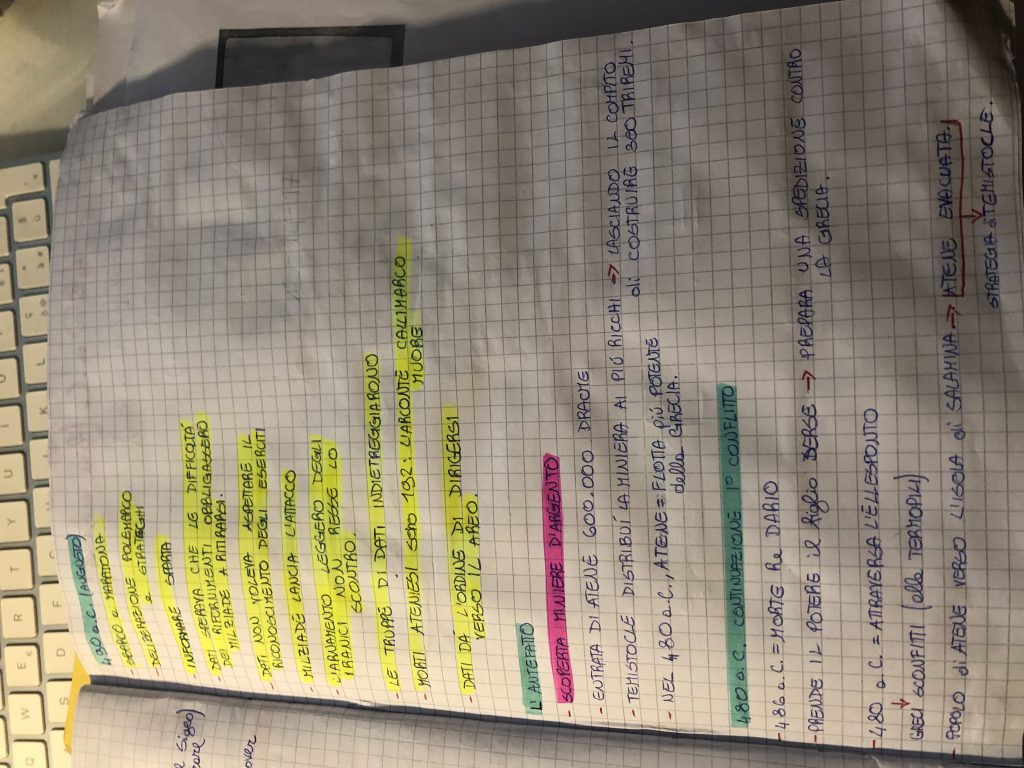 490 a.C. (AGOSTO)
- SBARCO a MARATONA
- DELIBERAZIONE POLEMARCO
e STRATEGHI
- INFORMARE SPARTA
- DATI SPERAVA CHE LE DIFFICOLTÁ
DEI RIFORNIMENTI OBBLIGASSERO
MILZIADE A RITIRARSI.
- DATI NON VOLEVA ASPETTARE IL
RICONGIUNGIMENTO DEGLI ESERCITI
- MILZIADE LANCIA L'ATTACCO
- L'ARMAMENTO LEGGERO DEGLI
IRANICI NON RESSE LO
SCONTRO.
- LE TRUPPE DI DATI INDIETREGGIARONO
- MORTI ATENIESI SONO 192: L'ARCONTE CALLIMARCO
MUORE
- DATI DÁ L'ORDINE DI DIRIGERSI
VERSO IL
L'ANTEFATO
- SCOPERTA MINIERE D'ARGENTO
- ENTRATA DI ATENE 600.000 DRACME
- TEMISTOCLE DISTRIBUÍ LA MINIERA AI PIÚ RICCHI → LASCIANDO IL COMPITO
di COSTRUIRE 380 TRIREMI.
- NEL 480 a.C., ATENE = FLOTTA PIÚ POTENTE
della GRECIA.
480 a.C. CONTINUAZIONE 1° CONFLITO
- 486 a.C. = MORTE Re DARIO
- PRENDE IL POTERE il figlio SERSE → PREPARA UNA SPEDIZIONE CONTRO
LA GRECIA.
- 480 a.C. = ATTRAVERSA L'ELLESPONTO
GRECI SCONFITTI (alle TERMOPILI)
- POPOLO di ATENE VERSO L'ISOLA di SALAMINA → ATENE EVACUATA.
STRATEGIA di TEMISTOCLE.
over